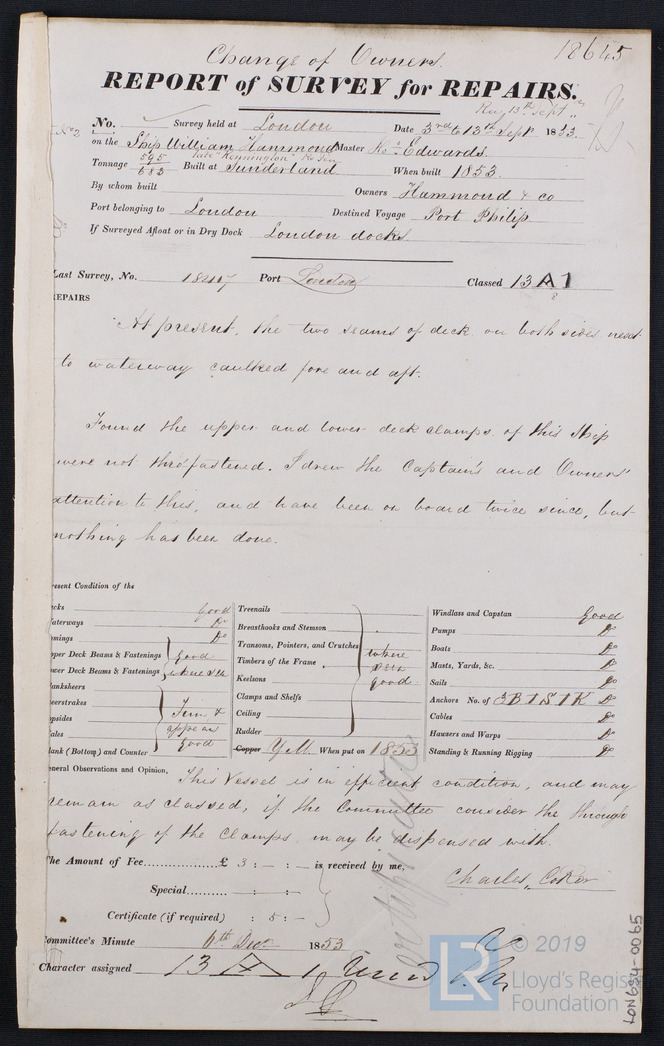 Change of Owners. 18645
REPORT of SURVEY for REPAIRS.
Rec 13th Sept
No. Survey held at London Date 3rd & 13th Sept 1853.
on the Ship William Hammond Master Edwards
late "Kennington"
Tonnage 595/683 Built at Sunderland When built 1853.
By whom built Owners Hammond & co
Port belonging to London Destined Voyage Port Philip
If Surveyed Afloat or in Dry Dock London docks.
Last Survey, No. Port London Classed 13 A 1
EPAIRS
At present, the two seams of deck on both sides next
to waterway caulked fore and aft.
Found the upper and lower deck clamps of this Ship
were not thro' fastened. I drew the Captain's and Owners'
attention to this, and have been on board twice since, but
nothing has been done.
resent Condition of the
ecks Good
aterways Do
amings Do
pper Deck Beams & Fastenings Good
ower Deck Beams & Fastenings where seen
lanksheers
eerstrakes Firm &
opsides appear
ales good
lank (Bottom) and Counter
Treenails
Breasthooks and Stemson
Transoms, Pointers, and Crutches where
Timbers of the Frame seen
Keelsons good
Clamps and Shelfs
Ceiling
Rudder
Copper Y.M. When put on 1853
Windlass and Capstan Good
Pumps Do
Boats Do
Masts, Yards, &c. Do
Sails Do
Anchors No. of 3B 1S 1K Do
Cables Do
Hawsers and Warps Do
Standing & Running Rigging Do
eneral Observations and Opinion, This Vessel is in efficient condition, and may
remain as classed, if the Committee consider the through
fastening of the Clamps may be dispensed with.
The Amount of Fee £ 3 : - : - is received by me,
Special - : - : -
Charles
Certificate (if required) : 5 : -
Committee's Minute 6th Decr 1853
Character assigned 13 A 1
LON684-0065
LR
© 2019
Lloyd's Register
Foundation